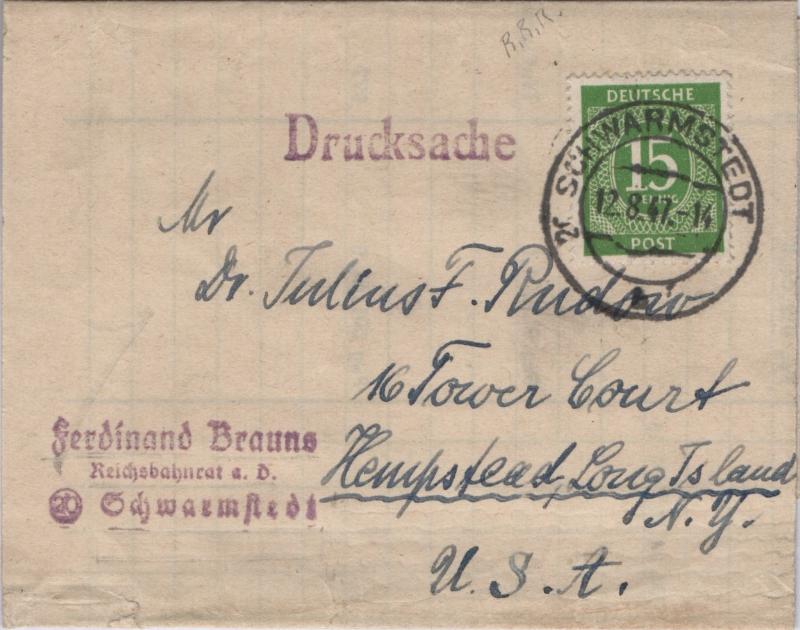 R.R.R.
DEUTSCHE
15
PFENNIG
POST
SCHWARMSTEDT
12.8.47-14
Drucksache
Mr
Dr. Julius F. Rudow
16 Tower Court
Hempstead, Long Island
N.Y.
U.S.A.
Ferdinand Brauns
Reichsbahnrat a. D.
20 Schwarmstedt